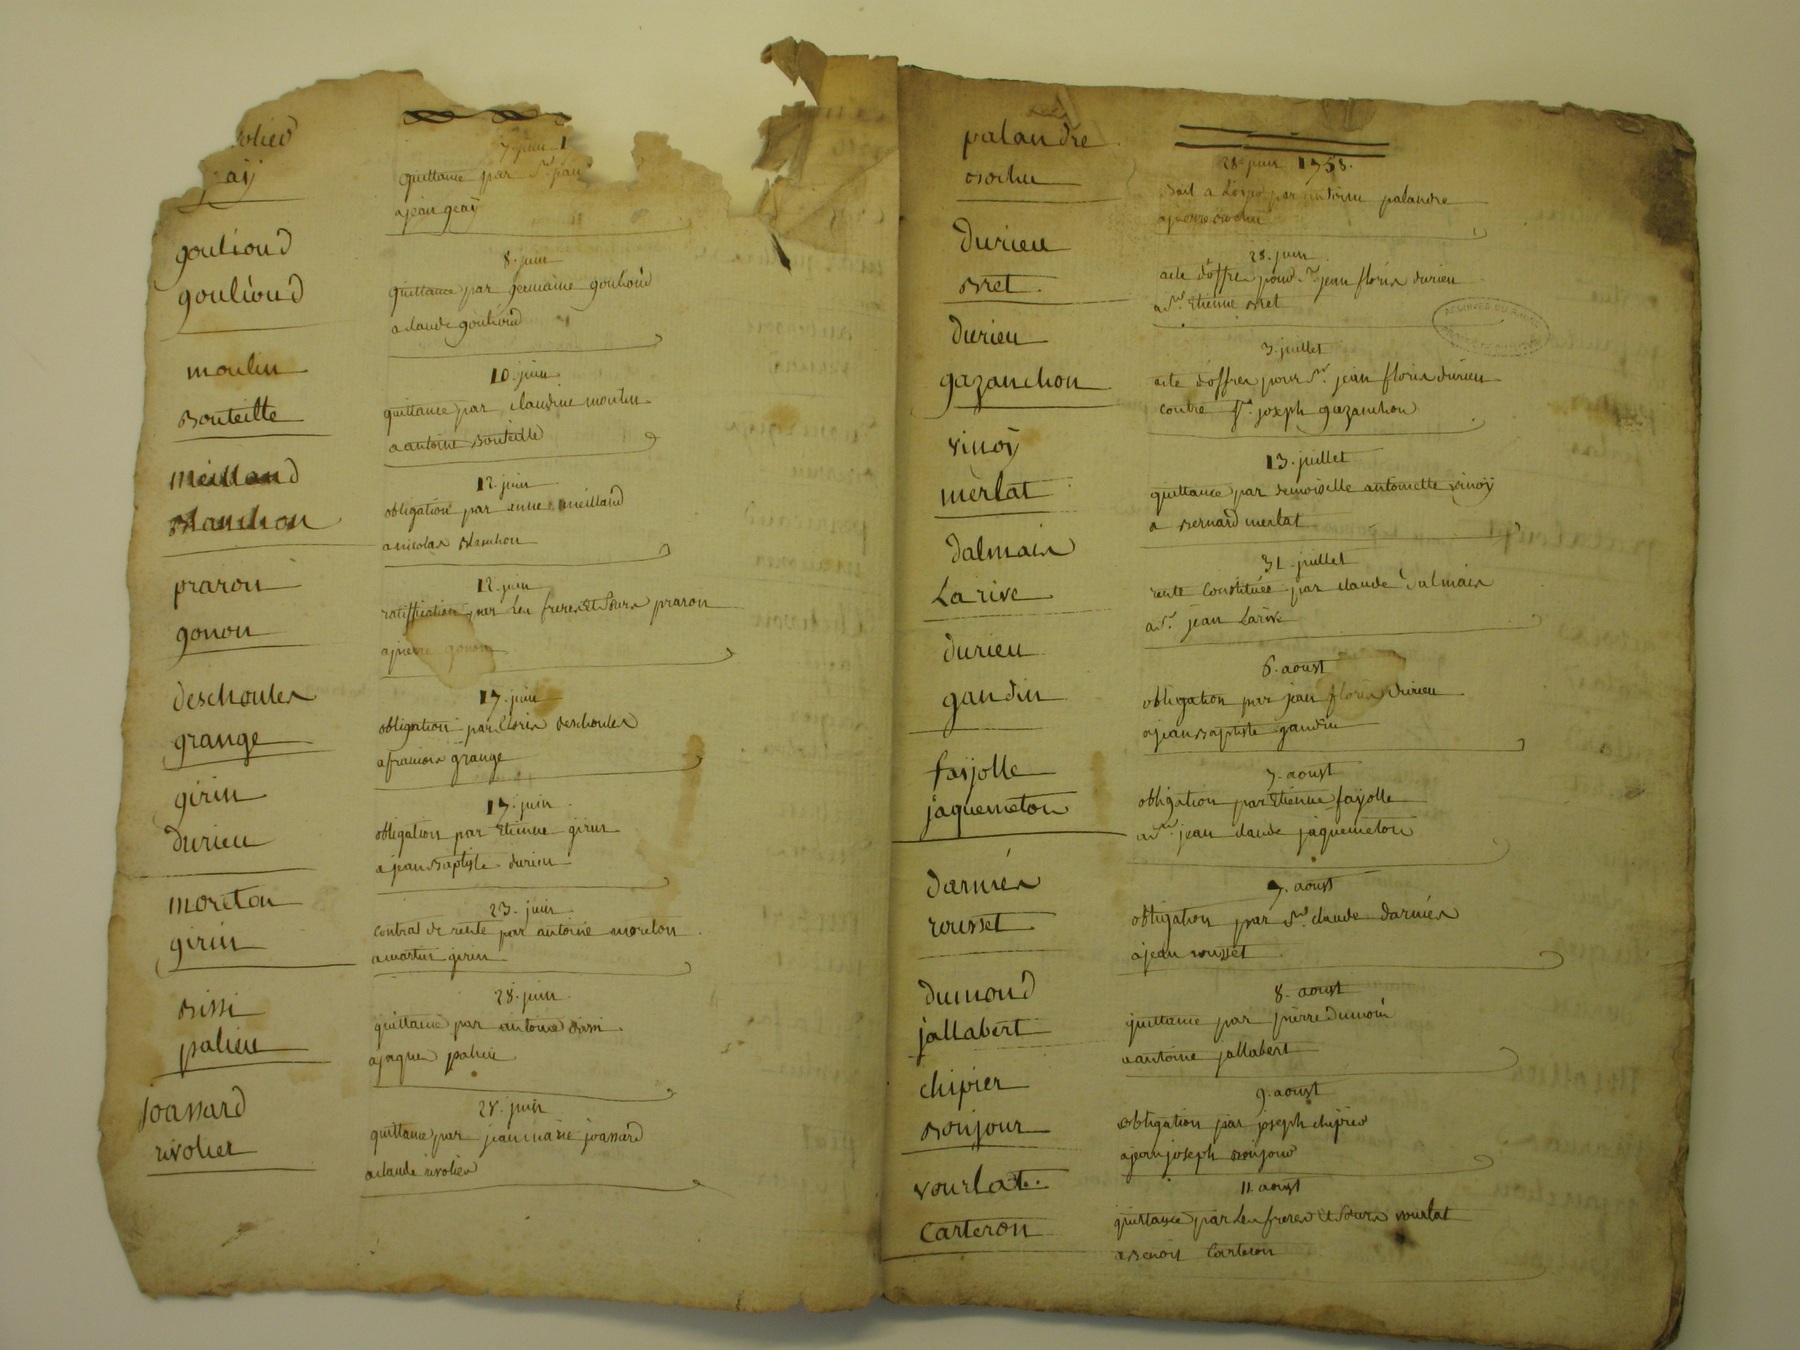 olier
gaÿ
7. juin 1
quittance par Sr. jean
a jean gaÿ
gouliond
gouliond
8. juin
quittance par germaine gouliond
a claude gouliond
moulin
Bouteille
10. juin
quittance par claudine moulin
a antoine Bouteille
meilland
Blanchon
12. juin
obligation par meilland
a nicolas Blanchon
praron
gonon
12. juin
ratiffication par Les freres et Sœurs praron
a pierre gonon
deschoules
grange
17. juin
obligation par floris deschoules
a francois grange
girin
durieu
17. juin
obligation par Etienne girin
a jean Baptiste durieu
moreton
girin
23. juin
contrat de rente par antoine moreton
a martin girin
Bissi
palieu
28. juin
quittance par antoine Bissi
a jaques palieu
Joassard
rivolier
28. juin
quittance par jean marie joassard
a claude rivolier
palandre
crochu
28. juin 1758.
Bail a Loyer par antoine palandre
a pierre crochu
Durieu
Bret
28. juin
acte d'offres pour Sr. jean floris durieu
a Sr. Etienne Bret
ARCHIVES DU RHÔNE
Durieu
gazanchon
3. juillet
acte d'offres pour Sr. jean floris durieu
contre Sr. joseph gazanchon
vinoÿ
merlat
13. juillet
quittance par demoiselle antoinette vinoÿ
a Bernard merlat
Dalmais
Larive
31. juillet
rente Constituée par claude Dalmais
a Sr. jean Larive
Durieu
gandin
6. aoust
obligation par jean floris Durieu
a jean Baptiste gandin
faÿolle
jaquemeton
7. aoust
obligation par Etienne faÿolle
a Sr. jean claude jaquemeton
Darnies
rousset
7. aoust
obligation par Sr. claude Darnies
a jean rousset
Dumond
jallabert
8. aoust
quittance par pierre Dumond
a antoine jallabert
chipier
Bonjour
9. aoust
obligation par joseph chipier
a jean joseph Bonjour
vourlat..
Carteron
11. aoust
quittance par Les freres et Sœurs vourlat
a Benoit Carteron